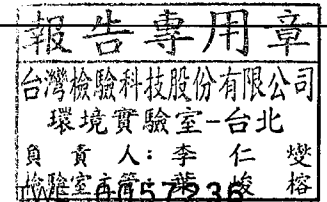 報告專用章
台灣檢驗科技股份有限公司
環境實驗室-台北
負責人：李仁燮
檢驗室主管：葉峻榕
0057236